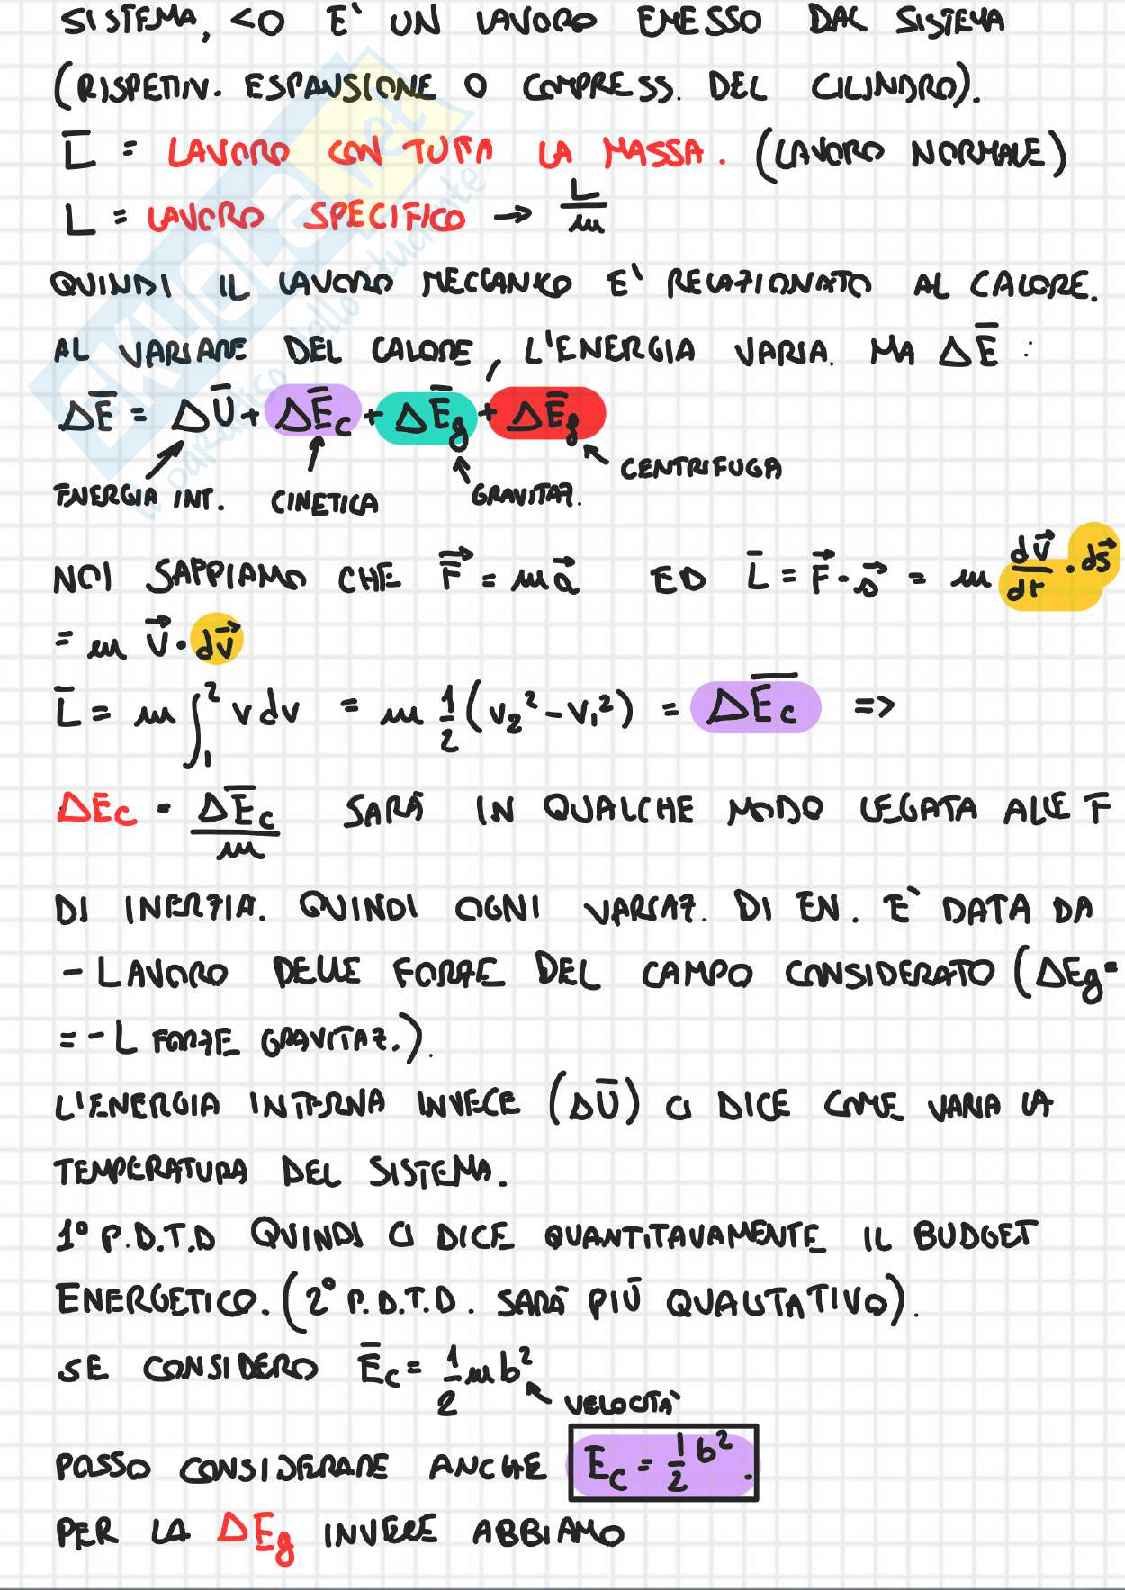 SISTEMA, <0 E' UN LAVORO EMESSO DAL SISTEMA
(RISPETIV. ESPANSIONE O COMPRESS. DEL CILINDRO).
L̅ = LAVORO CON TUTTA LA MASSA. (LAVORO NORMALE)
L = LAVORO SPECIFICO → L/m
QUINDI IL LAVORO MECCANICO E' RELAZIONATO AL CALORE.
AL VARIARE DEL CALORE, L'ENERGIA VARIA. MA ΔE̅ :
ΔE̅ = ΔU̅ + ΔE̅c + ΔE̅g + ΔE̅f
CENTRIFUGA
ENERGIA INT. CINETICA GRAVITAZ.
NOI SAPPIAMO CHE F̅⃗ = ma⃗ ED L̅ = F⃗·s⃗ = m dv⃗/dt · ds⃗
= m v⃗ · dv⃗
L̅ = m ∫₁² v dv = m 1/2 (v₂² - v₁²) = ΔE̅c =>
ΔEc = ΔE̅c/m SARÀ IN QUALCHE MODO LEGATA ALLE F
DI INERZIA. QUINDI OGNI VARIAZ. DI EN. E' DATA DA
- LAVORO DELLE FORZE DEL CAMPO CONSIDERATO (ΔEg =
= - L FORZE GRAVITAZ.).
L'ENERGIA INTERNA INVECE (ΔU̅) CI DICE COME VARIA LA
TEMPERATURA DEL SISTEMA.
1° P.D.T.D QUINDI CI DICE QUANTITAVAMENTE IL BUDGET
ENERGETICO. (2° P.D.T.D. SARÀ PIÙ QUALITATIVO).
SE CONSIDERO E̅c = 1/2 mb²
VELOCITÀ
POSSO CONSIDERARE ANCHE Ec = 1/2 b².
PER LA ΔEg INVECE ABBIAMO